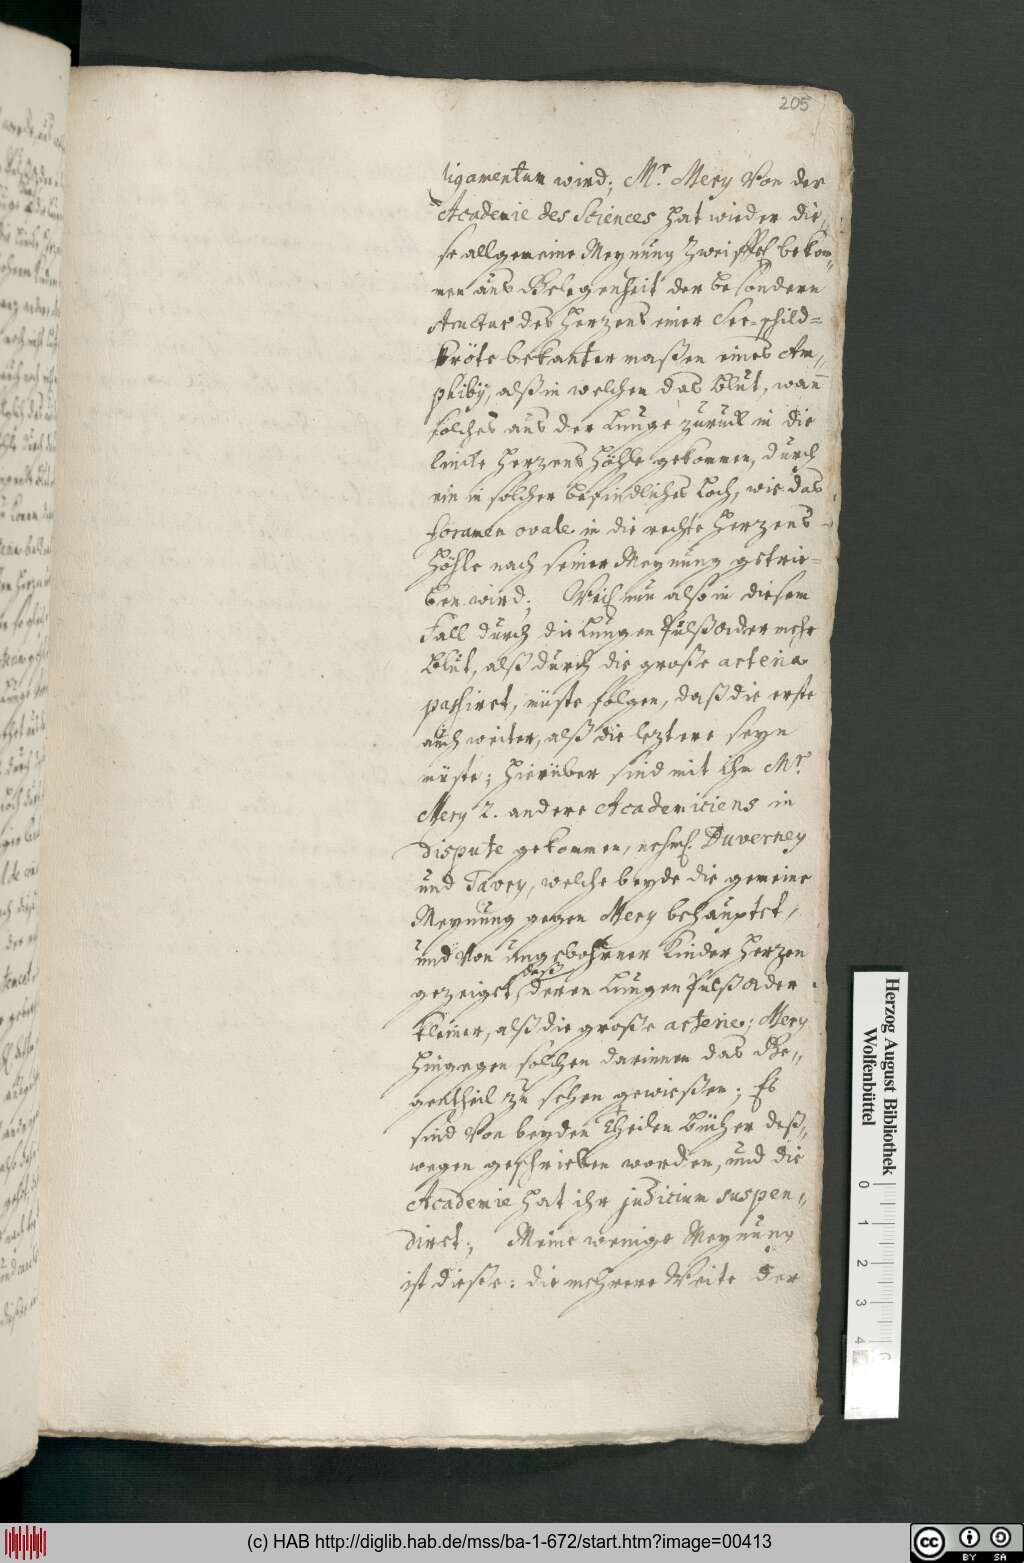 205
ligamentum wird; Mr. Mery von der
Academie des Sciences hat wieder die„
se allgemeine Meynung Zweiffel bekom„
men aus Gelegenheit der besondern
structur des Herzens einer See-schild=
kröte bekanter maßen eines Am„
phiby, alß in welchen das Blut, wan̄
solches aus der Lunge zurück in die
lincke Herzens Höhle gekommen, durch
ein in solcher befindliches Loch, wie das
foramen ovale in die rechte Herzens-
Höhle nach seiner Meynung getrie-
ben wird; Weil nun also in diesem
Fall durch die Lungen Pulßader mehr
Blut, alß durch die große arteria
passiret, müste folgen, daß die erste
auch weiter, alß die leztere seyn
müste; hierüber sind mit ihm Mr.
Mery 2. andere Academiciens in
dispute gekommen, nehml. Duverney
und Tavry, welche beyde die gemeine
Meynung gegen Mery behauptet,
und von ungebohrner Kinder Herzen
gezeiget, daß deren Lungen Pulßader
kleiner, alß die große arterie; Mery
hingegen solchen darinnen das Ge„
gentheil zu sehen gewießen; Es
sind von beyden Theilen Bücher deß„
wegen geschrieben worden, und die
Academie hat ihr judicium suspen„
diret; Meine wenige Meynung
ist dieße: die mehrere Weite der
Herzog August Bibliothek
Wolfenbüttel
0 1 2 3 4
(c) HAB http://diglib.hab.de/mss/ba-1-672/start.htm?image=00413
cc BY SA